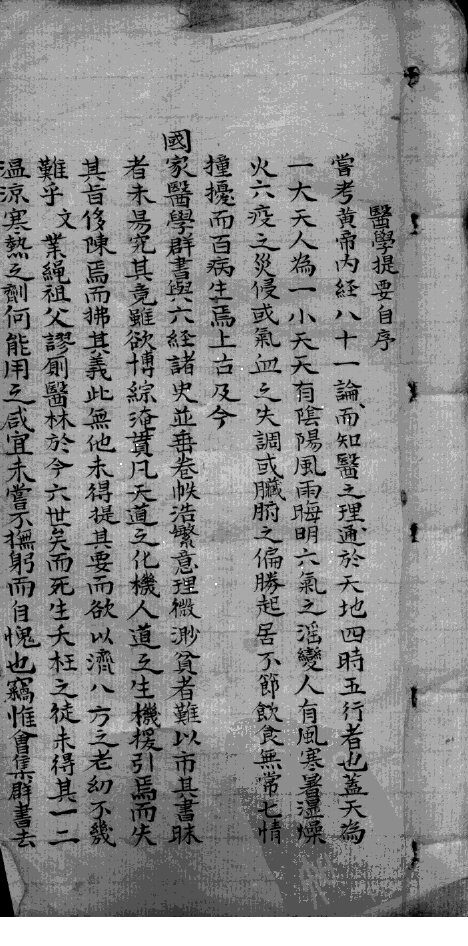 醫學提要自序
嘗考黃帝內經八十一論而知醫之理通於天地四時五行者也蓋天為
一大天人為一小天天有陰陽風雨晦明六氣之淫變人有風寒暑濕燥
火六疫之災侵或氣血之失調或臟腑之偏勝起居不節飲食無常七情
撞擾而百病生焉上古及今
國家醫學群書與六經諸史並垂卷帙浩繁意理微渺貧者難以市其書昧
者未易究其竟雖欲博綜淹貫凡天道之化機人道之生機援引焉而失
其旨侈陳焉而拂其義此無他未得提其要而欲以濟八方之老幼不幾
難乎文業繩祖父謬創醫林於今六世矣而死生夭枉之徒未得其一二
溫涼寒熱之劑何能用之咸宜未嘗不撫躬而自愧也竊惟會集群書去